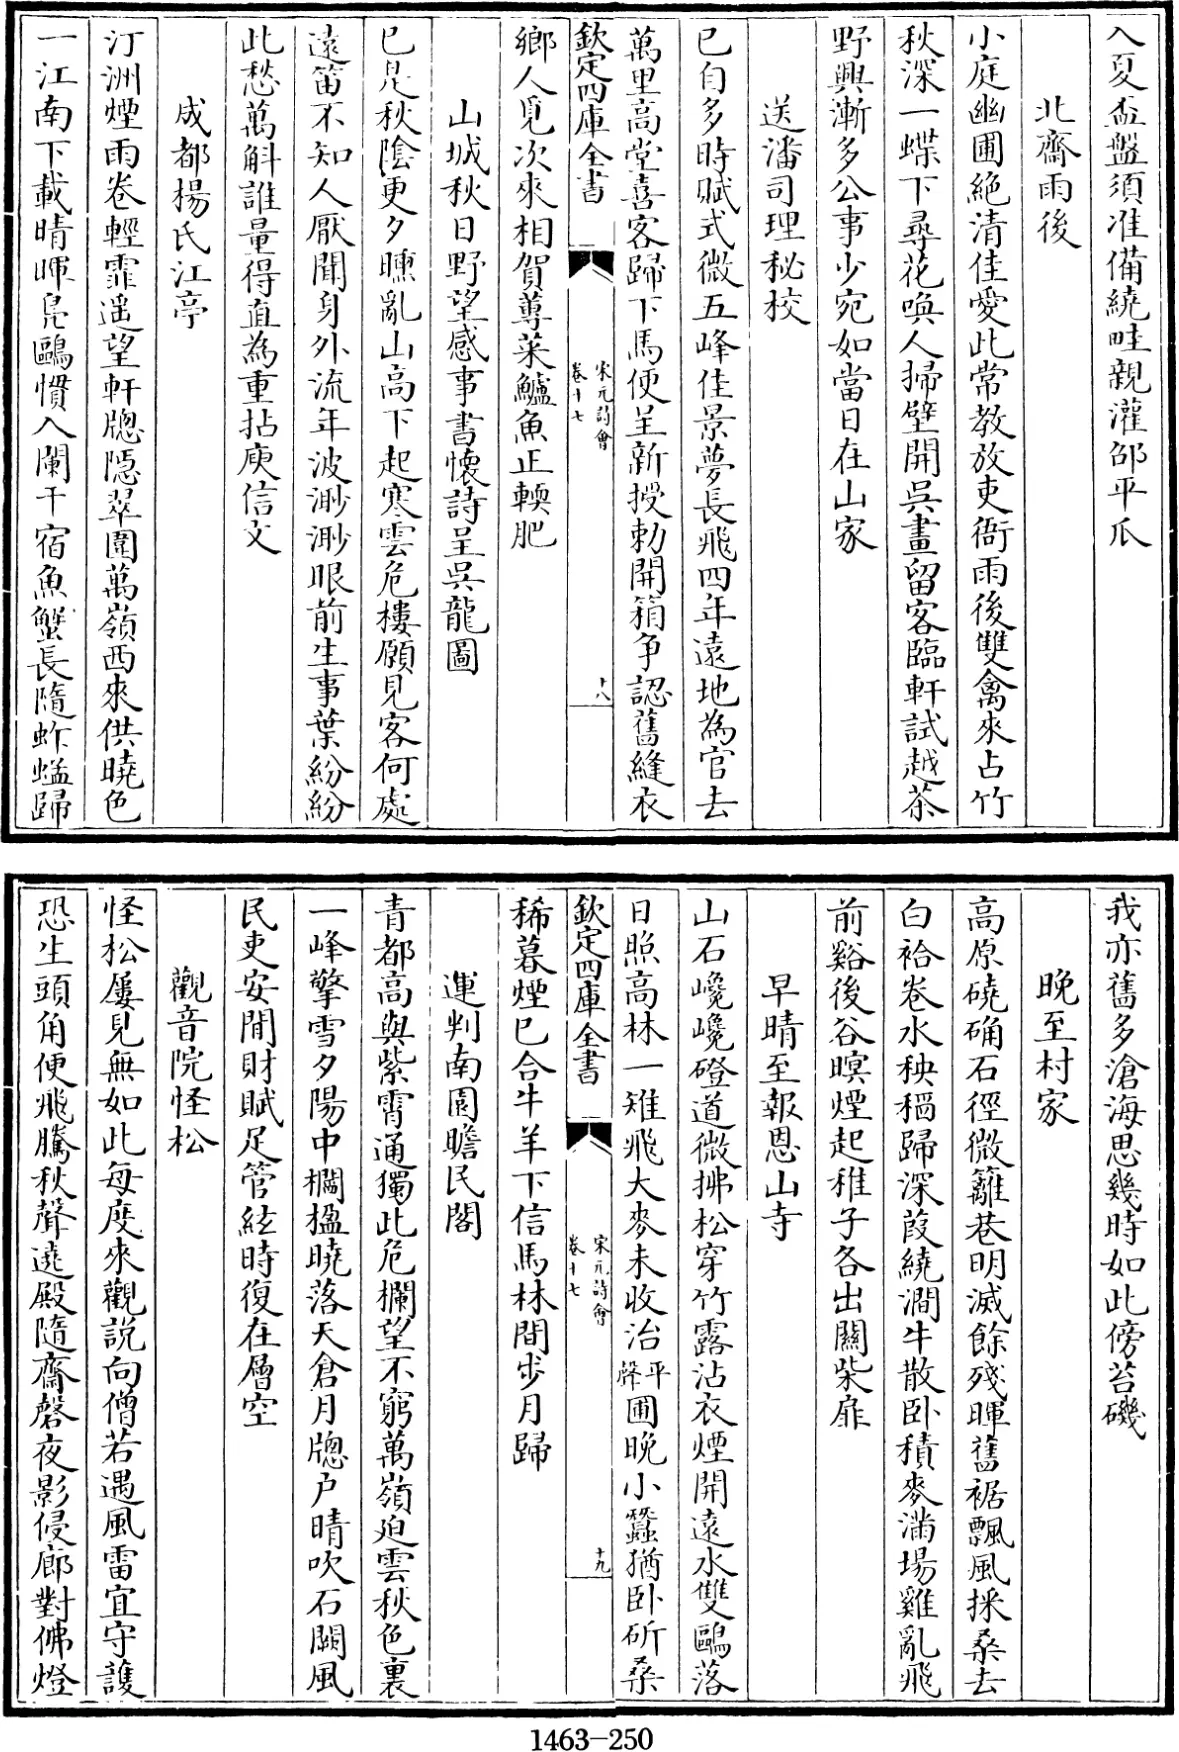 入夏盃盤須准備繞畦親灌邵平瓜
北齋雨後
小庭幽圃絶清佳愛此常教放吏衙雨後雙禽來占竹
秋深一蝶下尋花喚人掃壁開吳畫留客臨軒試越茶
野興漸多公事少宛如當日在山家
送潘司理秘校
已自多時賦式微五峰佳景夢長飛四年遠地為官去
萬里高堂喜客歸下馬便呈新授勅開箱争認舊縫衣
欽定四庫全書
宋元詩會
卷十七
十八
鄉人覓次來相賀蓴菜鱸魚正輭肥
山城秋日野望感事書懷詩呈吳龍圖
已是秋陰更夕曛亂山高下起寒雲危樓願見客何處
遠笛不知人厭聞身外流年波渺渺眼前生事葉紛紛
此愁萬斛誰量得直為重拈庾信文
成都楊氏江亭
汀洲煙雨卷輕霏遥望軒牕隠翠圍萬嶺西來供曉色
一江南下載晴暉鳬鷗慣入闌干宿魚蟹長隨蚱蜢歸
我亦舊多滄海思幾時如此傍苔磯
晚至村家
高原磽确石徑微籬巷明滅餘殘暉舊裾飄風採桑去
白袷卷水秧稻歸深葭繞澗牛散卧積麥滿場雞亂飛
前谿後谷暝煙起稚子各出關柴扉
早晴至報恩山寺
山石巉巉磴道微拂松穿竹露沾衣煙開遠水雙鷗落
日照高林一雉飛大麥未收治平聲圃晚小蠶猶卧斫桑
欽定四庫全書
宋元詩會
卷十七
十九
稀暮煙已合牛羊下信馬林間步月歸
運判南園瞻民閣
青都高與紫霄通獨此危欄望不窮萬嶺廹雲秋色裏
一峰擎雪夕陽中櫩楹曉落天倉月牕户晴吹石闕風
民吏安閒財賦足管絃時復在層空
觀音院怪松
怪松屢見無如此每度來觀説向僧若遇風雷宜守護
恐生頭角便飛騰秋聲遶殿隨齋磬夜影侵廊對佛燈
1463-250